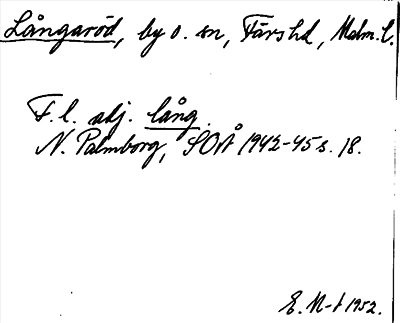 Långaröd, by o. sn, Färs hd, Malm. l.
F. l. adj. lång.
N. Palmborg, SOÅ 1942-45 s. 18.
E. M-t 1952.